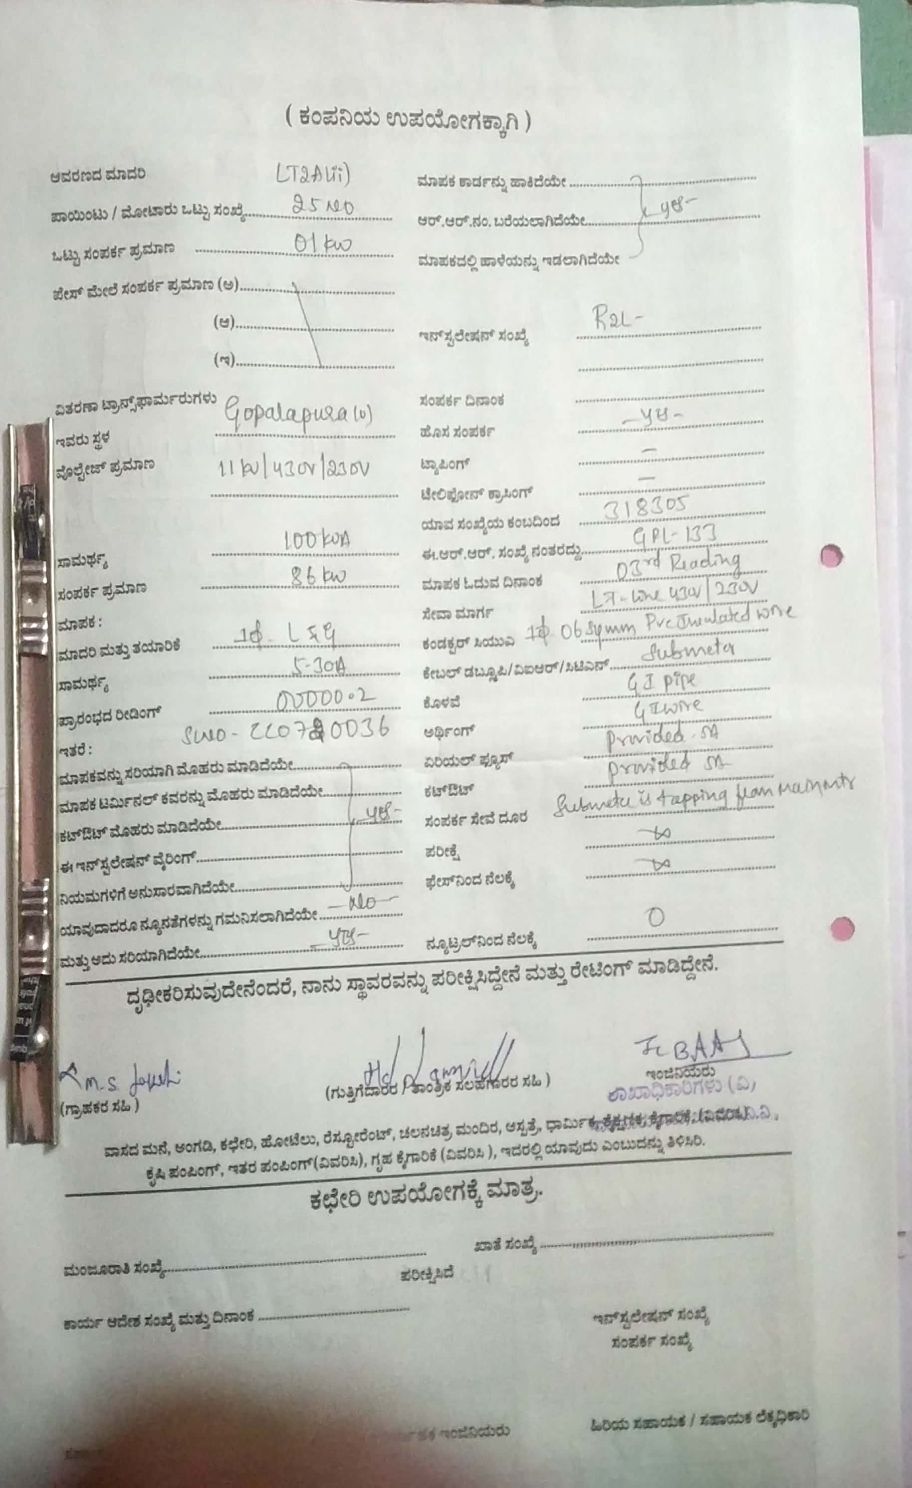 ( ಕಂಪನಿಯ ಉಪಯೋಗಕ್ಕಾಗಿ )
ಆವರಣದ ಮಾದರಿ LT2A(ii)
ಪಾಯಿಂಟು / ಮೋಟಾರು ಒಟ್ಟು ಸಂಖ್ಯೆ 25 NO
ಒಟ್ಟು ಸಂಪರ್ಕ ಪ್ರಮಾಣ 01 kw
ಫೇಸ್ ಮೇಲೆ ಸಂಪರ್ಕ ಪ್ರಮಾಣ (ಅ)
(ಆ)
(ಇ)
ವಿತರಣಾ ಟ್ರಾನ್ಸ್‌ಫಾರ್ಮರುಗಳು
ಇವರು ಸ್ಥಳ Gopalapura
ವೋಲ್ಟೇಜ್ ಪ್ರಮಾಣ 11 kv/430V/230V
ಸಾಮರ್ಥ್ಯ 100 kVA
ಸಂಪರ್ಕ ಪ್ರಮಾಣ 86 kw
ಮಾಪಕ :
ಮಾದರಿ ಮತ್ತು ತಯಾರಿಕೆ 1ϕ. L&G
ಸಾಮರ್ಥ್ಯ 5-30A
ಪ್ರಾರಂಭದ ರೀಡಿಂಗ್ 00000.2
ಇತರೆ :
ಮಾಪಕವನ್ನು ಸರಿಯಾಗಿ ಮೊಹರು ಮಾಡಿದೆಯೇ
ಮಾಪಕ ಟರ್ಮಿನಲ್ ಕವರನ್ನು ಮೊಹರು ಮಾಡಿದೆಯೇ
ಕಟ್‌ಔಟ್ ಮೊಹರು ಮಾಡಿದೆಯೇ yes
ಈ ಇನ್‌ಸ್ಟಲೇಷನ್ ವೈರಿಂಗ್
ನಿಯಮಗಳಿಗೆ ಅನುಸಾರವಾಗಿದೆಯೇ
ಯಾವುದಾದರೂ ನ್ಯೂನತೆಗಳನ್ನು ಗಮನಿಸಲಾಗಿದೆಯೇ -No-
ಮತ್ತು ಅದು ಸರಿಯಾಗಿದೆಯೇ -yes-
ಮಾಪಕ ಕಾರ್ಡನ್ನು ಹಾಕಿದೆಯೇ
ಆರ್.ಆರ್.ನಂ. ಬರೆಯಲಾಗಿದೆಯೇ yes-
ಮಾಪಕದಲ್ಲಿ ಹಾಳೆಯನ್ನು ಇಡಲಾಗಿದೆಯೇ
ಇನ್‌ಸ್ಟಲೇಷನ್ ಸಂಖ್ಯೆ
ಸಂಪರ್ಕ ದಿನಾಂಕ
ಹೊಸ ಸಂಪರ್ಕ -yes-
ಟ್ಯಾಪಿಂಗ್ -
ಟೇಲಿಫೋನ್ ಕ್ರಾಸಿಂಗ್ -
ಯಾವ ಸಂಖ್ಯೆಯ ಕಂಬದಿಂದ 318305
ಈ.ಆರ್.ಆರ್. ಸಂಖ್ಯೆ ನಂತರದ್ದು GPL-133
ಮಾಪಕ ಓದುವ ದಿನಾಂಕ 03rd Reading
ಸೇವಾ ಮಾರ್ಗ LT-line 430V/230V
ಕಂಡಕ್ಟರ್ ಸಿಯುವಿ 1ϕ 06 sqmm Pvc Insulated wire
ಕೇಬಲ್ ಡಬ್ಲೂಪಿ/ವಿಐಆರ್/ಸಿಟಿಎಸ್ Submeter
ಕೊಳವೆ GI pipe
ಅರ್ಥಿಂಗ್ GI wire
ಏರಿಯಲ್ ಫ್ಯೂಸ್ Provided 5A
ಕಟ್‌ಔಟ್ provided 5A
ಸಂಪರ್ಕ ಸೇವೆ ದೂರ Submeter is tapping from
ಪರೀಕ್ಷೆ
ಫೇಸ್‌ನಿಂದ ನೆಲಕ್ಕೆ
ನ್ಯೂಟ್ರಲ್‌ನಿಂದ ನೆಲಕ್ಕೆ 0
ದೃಢೀಕರಿಸುವುದೇನೆಂದರೆ, ನಾನು ಸ್ಥಾವರವನ್ನು ಪರೀಕ್ಷಿಸಿದ್ದೇನೆ ಮತ್ತು ರೇಟಿಂಗ್ ಮಾಡಿದ್ದೇನೆ.
(ಗ್ರಾಹಕರ ಸಹಿ )
(ಗುತ್ತಿಗೆದಾರರ / ತಾಂತ್ರಿಕ ಸಲಹೆಗಾರರ ಸಹಿ )
ಇಂಜಿನಿಯರು
ಶಾಖಾಧಿಕಾರಿಗಳು (ವಿ)
ವಾಸದ ಮನೆ, ಅಂಗಡಿ, ಕಛೇರಿ, ಹೋಟೆಲು, ರೆಸ್ಟೋರೆಂಟ್, ಚಲನಚಿತ್ರ ಮಂದಿರ, ಆಸ್ಪತ್ರೆ, ಧಾರ್ಮಿಕ, ಕೈಗಾರಿಕೆ, (ವಿವರಿಸಿ)
ಕೃಷಿ ಪಂಪಿಂಗ್, ಇತರ ಪಂಪಿಂಗ್(ವಿವರಿಸಿ), ಗೃಹ ಕೈಗಾರಿಕೆ (ವಿವರಿಸಿ ), ಇದರಲ್ಲಿ ಯಾವುದು ಎಂಬುದನ್ನು ತಿಳಿಸಿರಿ.
ಕಛೇರಿ ಉಪಯೋಗಕ್ಕೆ ಮಾತ್ರ.
ಮಂಜೂರಾತಿ ಸಂಖ್ಯೆ
ಖಾತೆ ಸಂಖ್ಯೆ
ಪರೀಕ್ಷಿಸಿದೆ
ಕಾರ್ಯ ಆದೇಶ ಸಂಖ್ಯೆ ಮತ್ತು ದಿನಾಂಕ
ಇನ್‌ಸ್ಟಲೇಷನ್ ಸಂಖ್ಯೆ
ಸಂಪರ್ಕ ಸಂಖ್ಯೆ
ಇಂಜಿನಿಯರು
ಹಿರಿಯ ಸಹಾಯಕ / ಸಹಾಯಕ ಲೆಕ್ಕಧಿಕಾರಿ